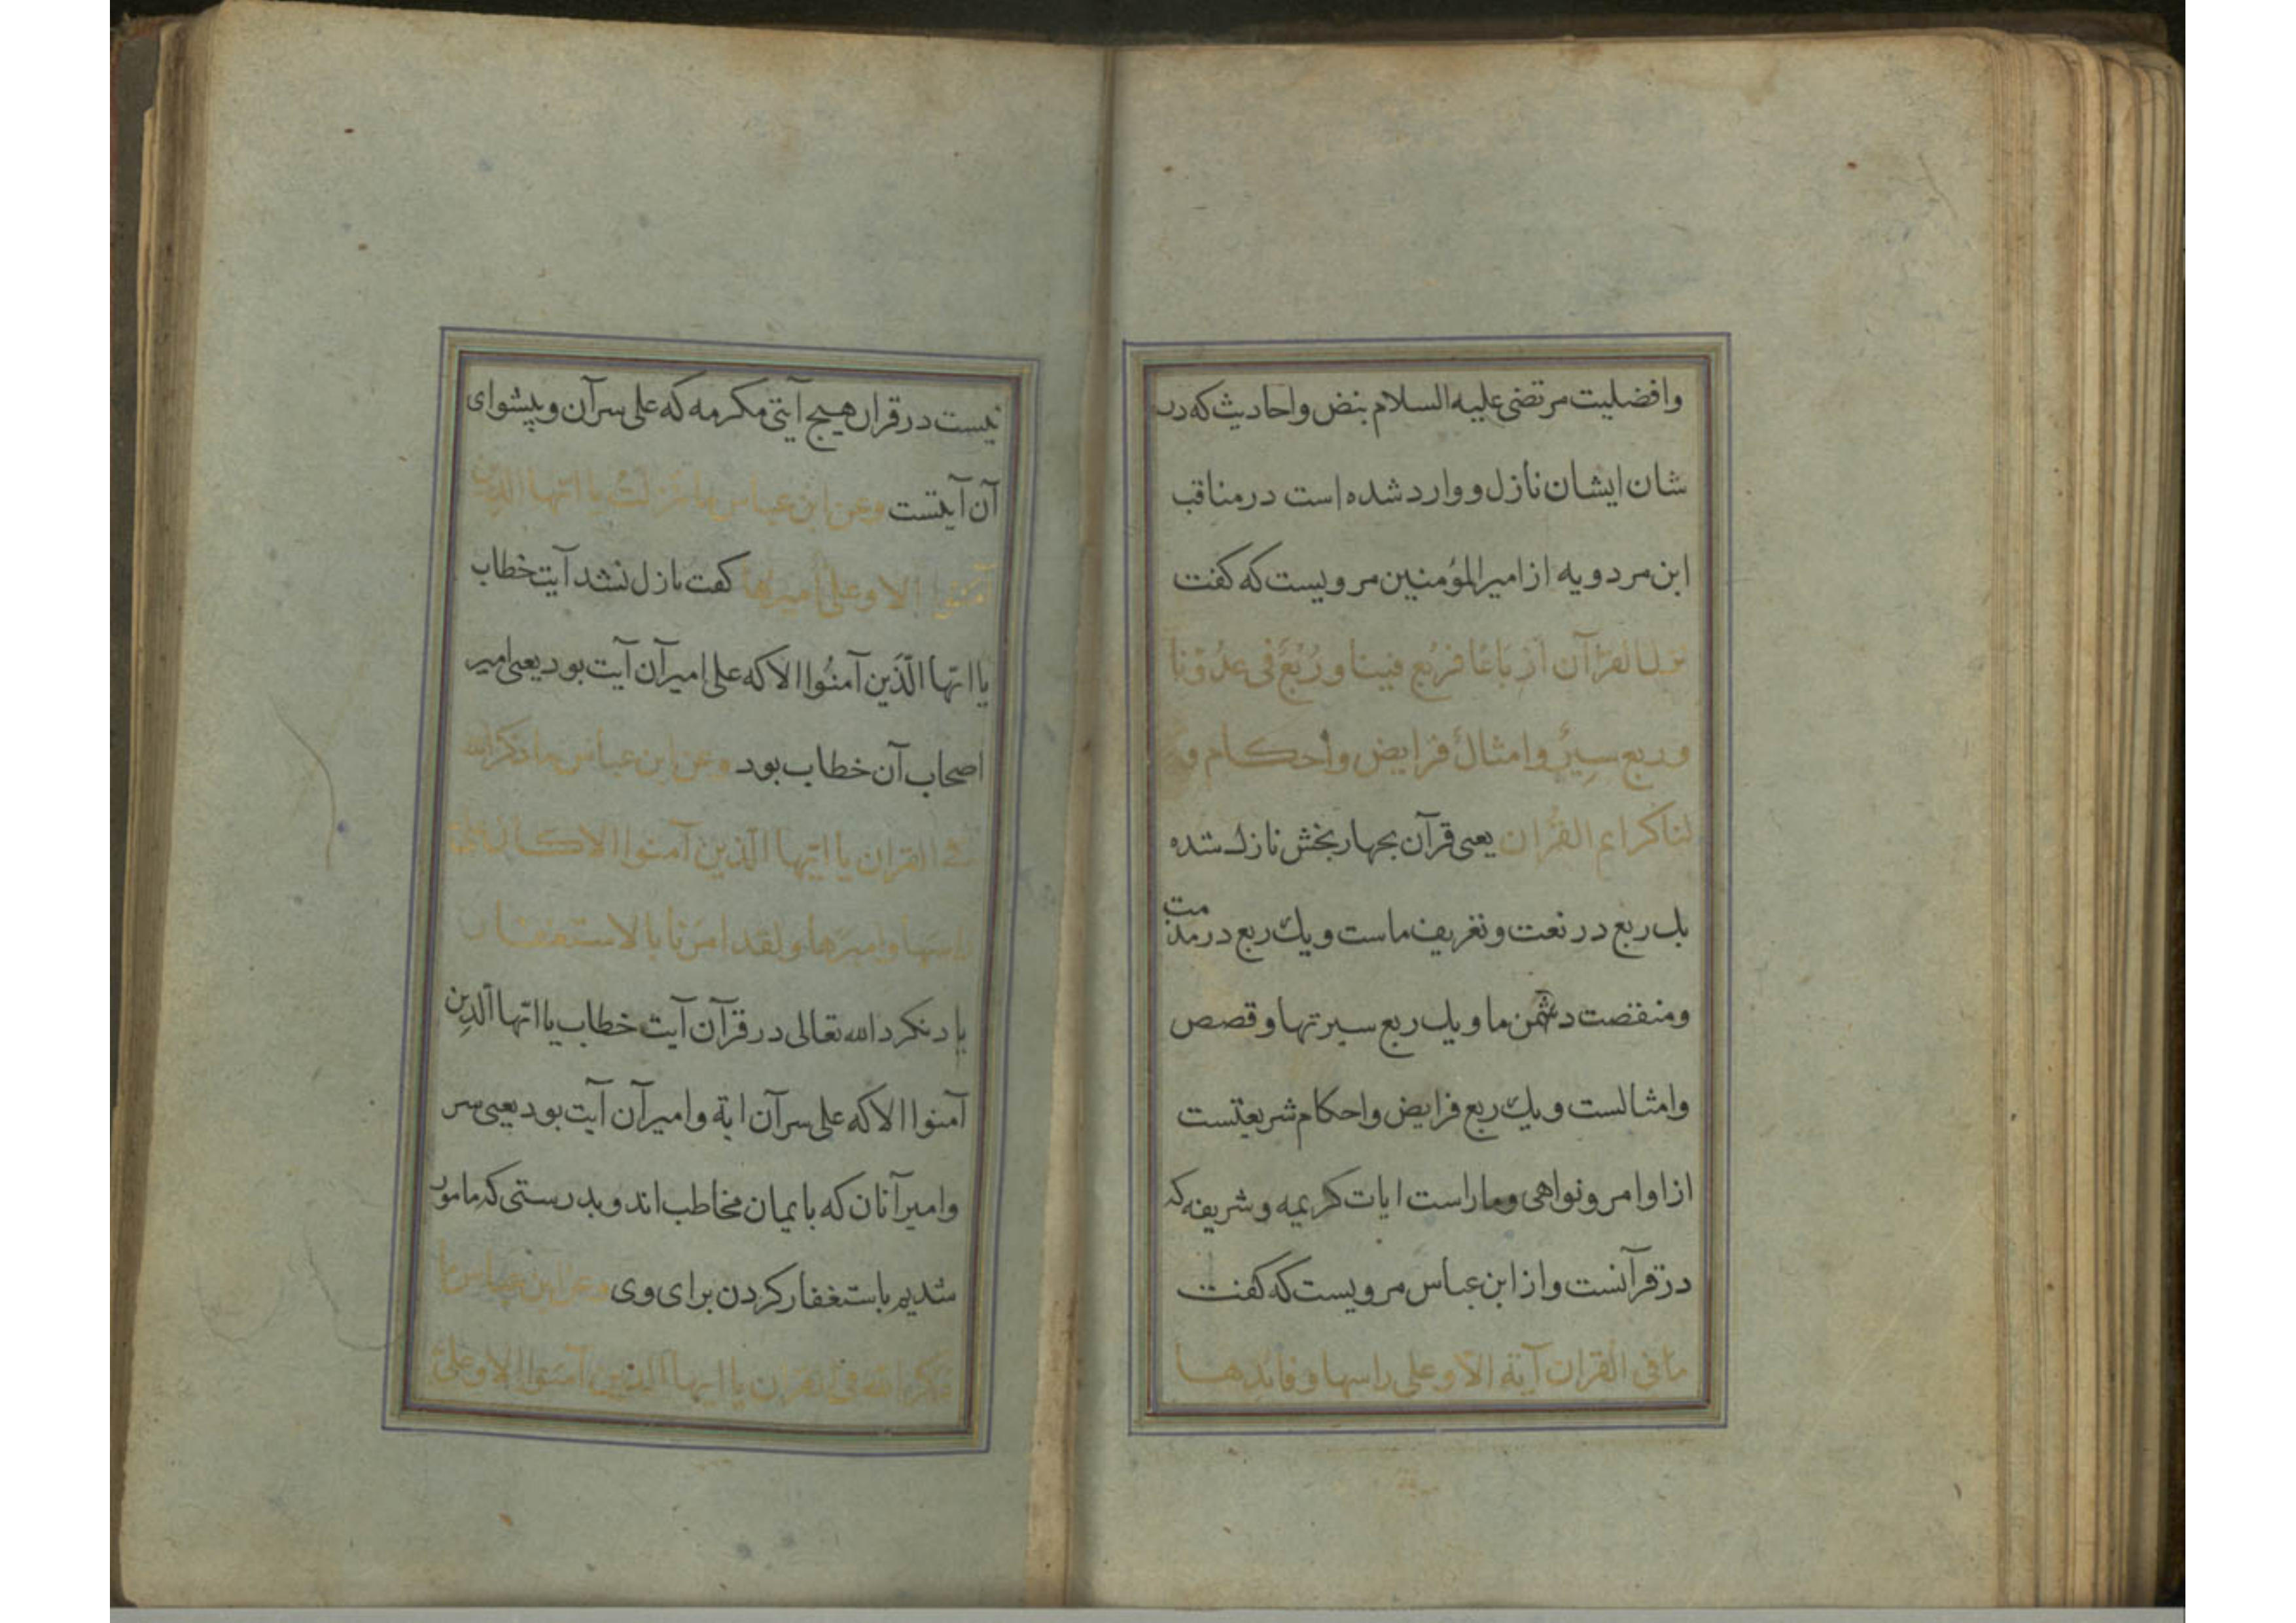 وافضلیت مرتضی علیه السلام بنص واحادیث که در
شان ایشان نازل و وارد شده است در مناقب
ابن مردویه از امیر المؤمنین مرویست که کفت
نزل القرآن أرباعا فربع فینا وربع فی عدونا
وربع سیر وامثال وربع فرایض واحکام و
لنا کرایم القرآن یعنی قرآن بچهار بخش نازل شده
یك ربع در نعت و تعریف ماست ویك ربع در مذمت
ومنقصت دشمن ما و یك ربع سیرتها و قصص
وامثالست ویك ربع فرایض واحکام شریعتست
از اوامر و نواهی وماراست ایات کریمه و شریفه که
در قرآنست و از ابن عباس مرویست که کفت
ما فی القران آیة الّا وعلی راسها وقائدها
نیست در قران هیچ آیتی مکرمه که علی سرآن و پیشوای
آن آیتست وعن ابن عباس ما نزلت یا ایّها الذین
آمنوا الا وعلی امیرها کفت نازل نشد آیت خطاب
یا ایّها الّذین آمنُوا الا که علی امیر آن آیت بود یعنی امیر
اصحاب آن خطاب بود وعن ابن عباس ما ذکر الله
فی القران یا ایّها الّذین آمنوا الا کان علی
راسها وامیرها ولقد امرنا بالاستغفار
یاد نکرد الله تعالی در قرآن آیت خطاب یا ایّها الّذین
آمنوا الا که علی سرآن ایة و امیرآن آیت بود یعنی سر
وامیر آنان که بایمان مخاطب اند و بدرستی که مامور
شدیم باستغفار کردن برای وی وعن ابن عباس ما
ذکر الله فی القران یا ایها الذین آمنوا الا وعلی